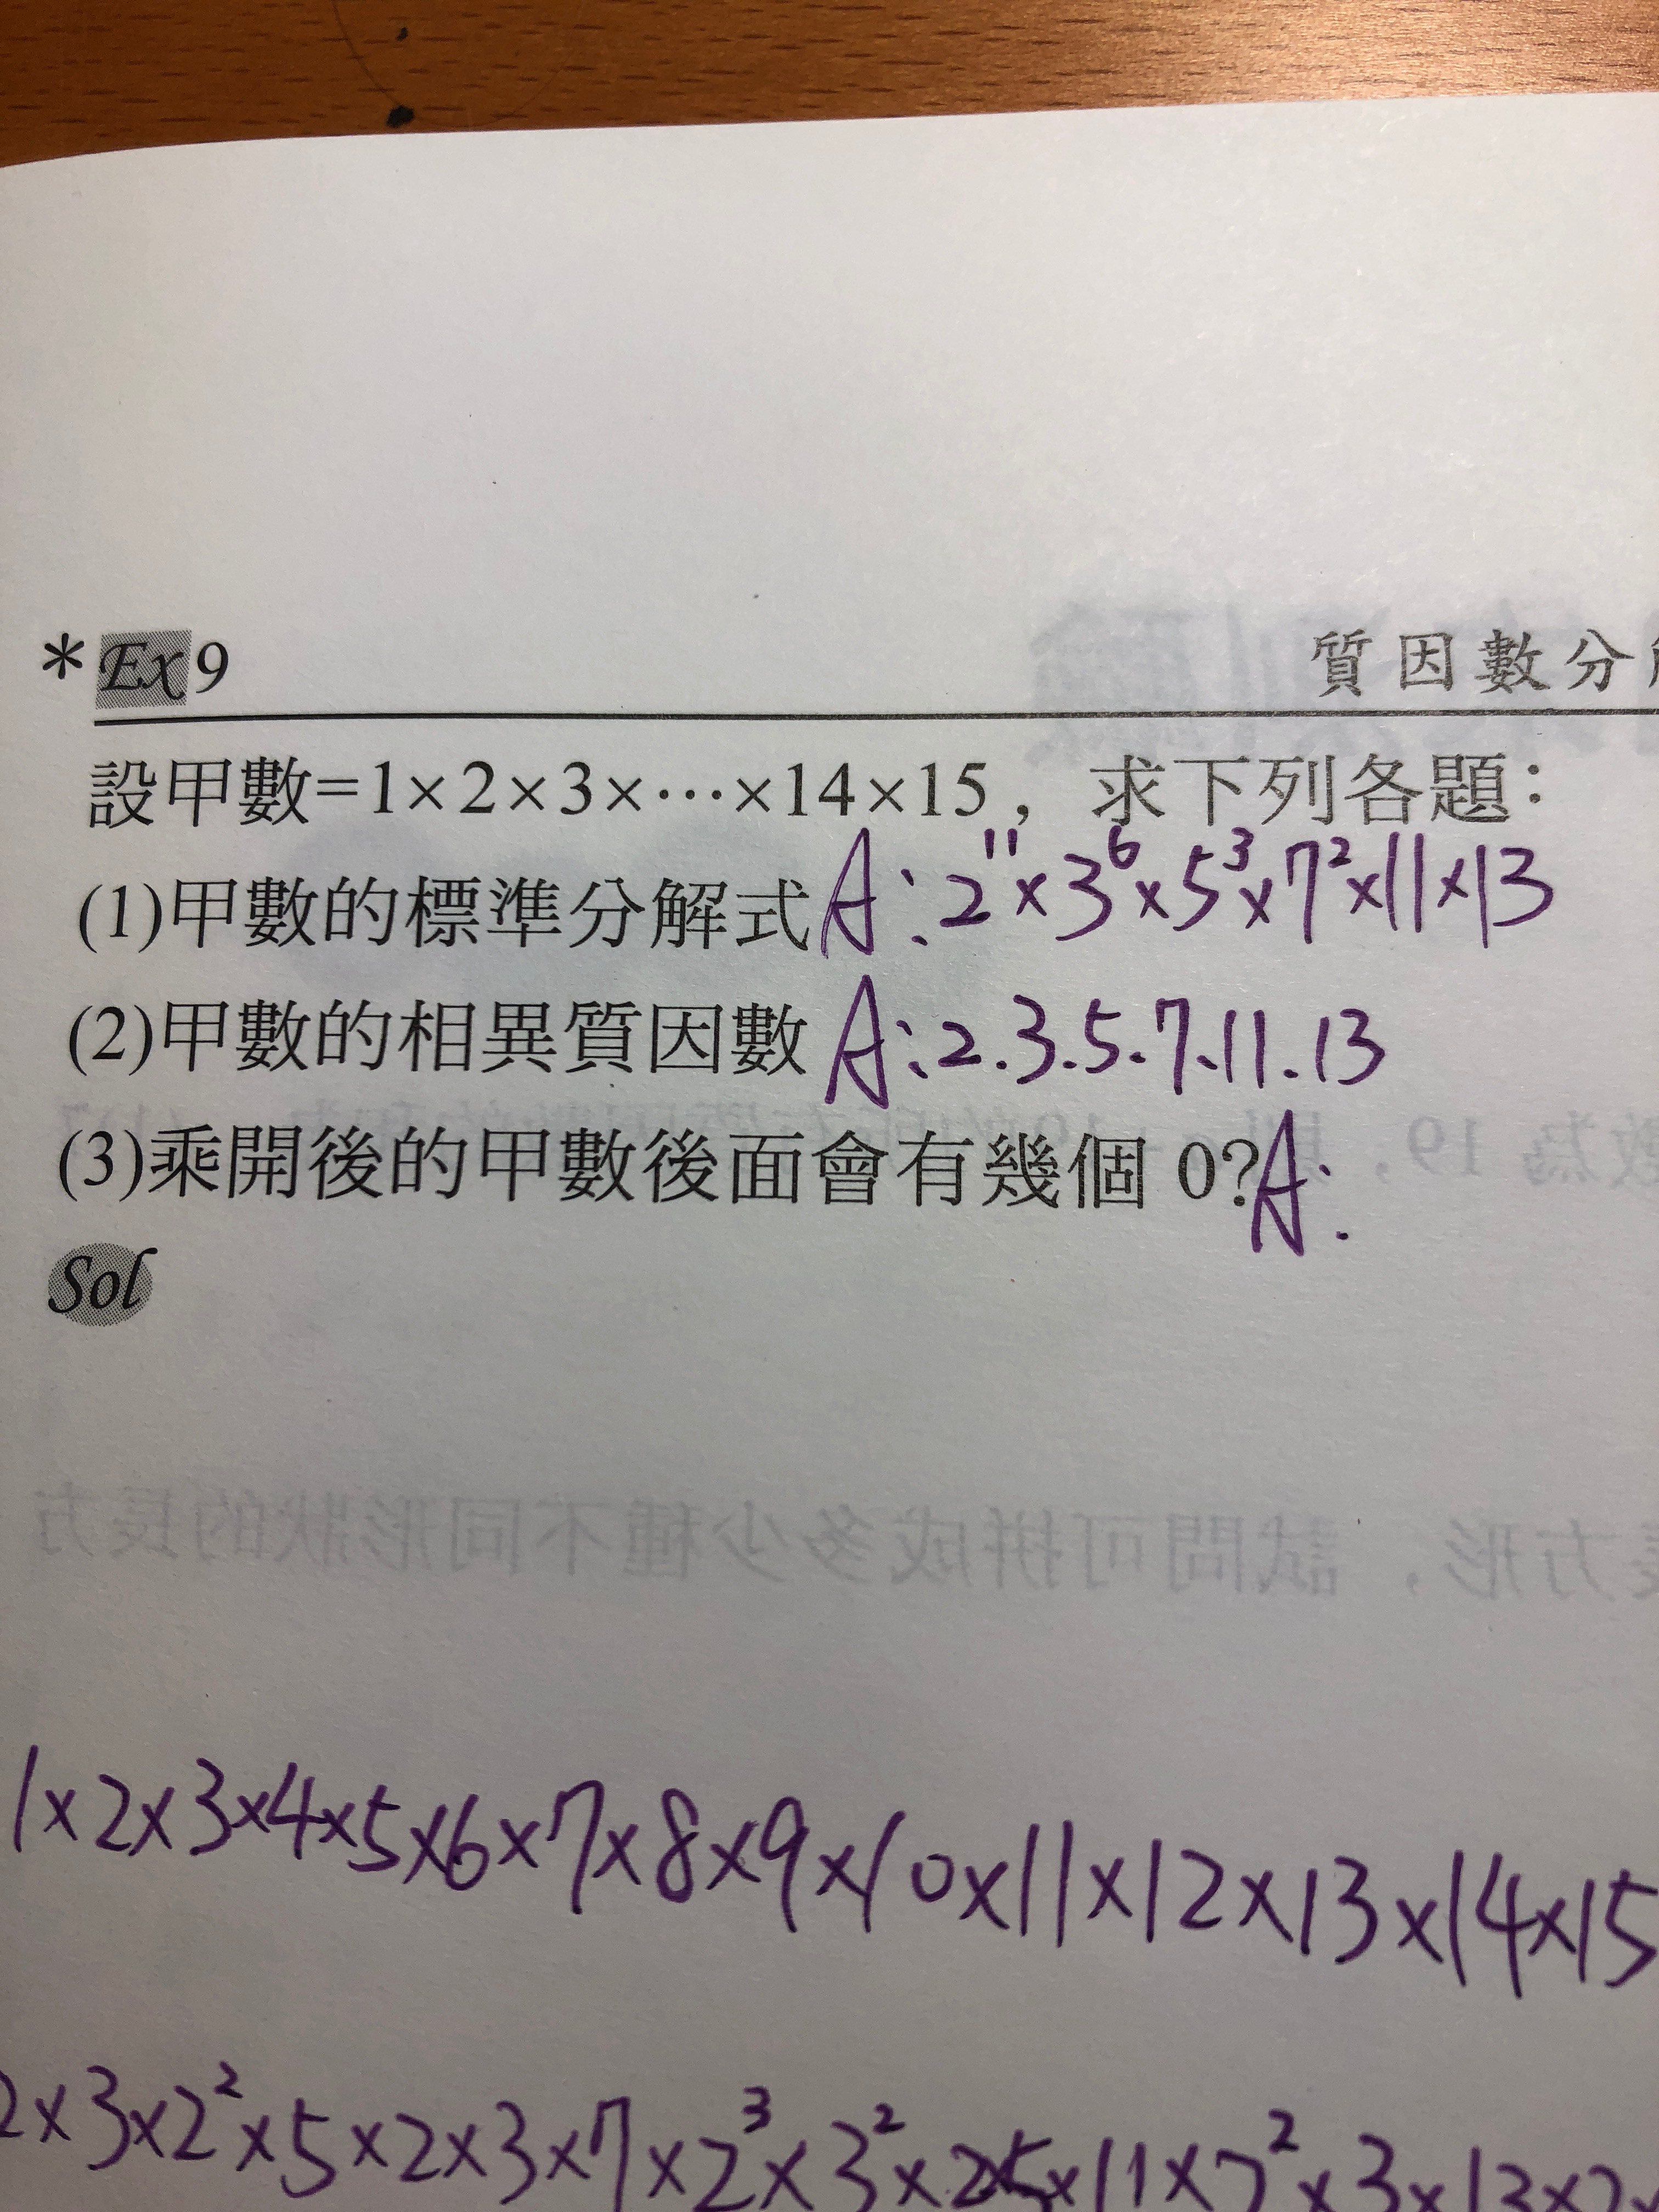 *Ex 9 質因數分
設甲數=1×2×3×…×14×15，求下列各題：
(1)甲數的標準分解式 A: 2¹¹×3⁶×5³×7²×11×13
(2)甲數的相異質因數 A: 2.3.5.7.11.13
(3)乘開後的甲數後面會有幾個 0? A:
Sol
1×2×3×4×5×6×7×8×9×10×11×12×13×14×15
2×3×2²×5×2×3×7×2³×3²×2×5×11×2²×3×13×2×